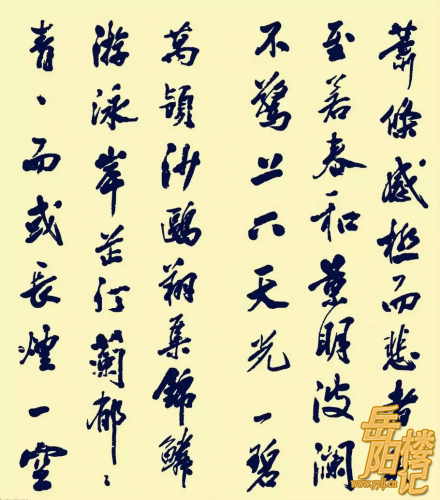 蕭條感極而悲者
至若春和景明波瀾
不驚上下天光一碧
萬頃沙鷗翔集錦鱗
游泳岸芷汀蘭郁〻
青〻而或長煙一空
岳阳楼记